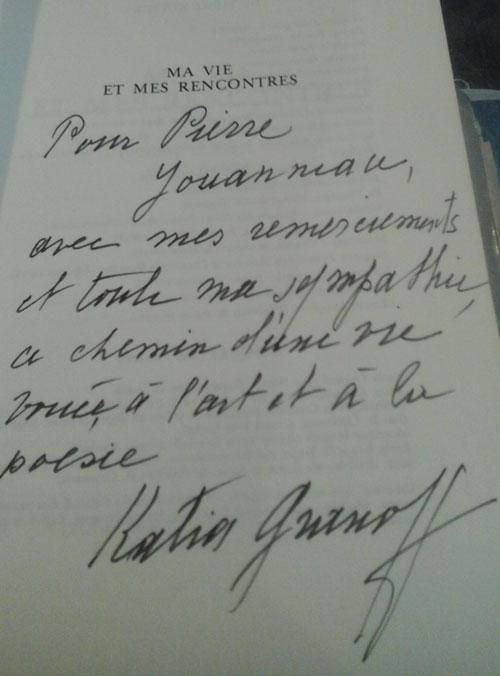 MA VIE
ET MES RENCONTRES
Pour Pierre
Youanneau,
avec mes remerciements
et toute ma sympathie,
ce chemin d'une vie
vouée à l'art et à la
poesie
Katia Granoff